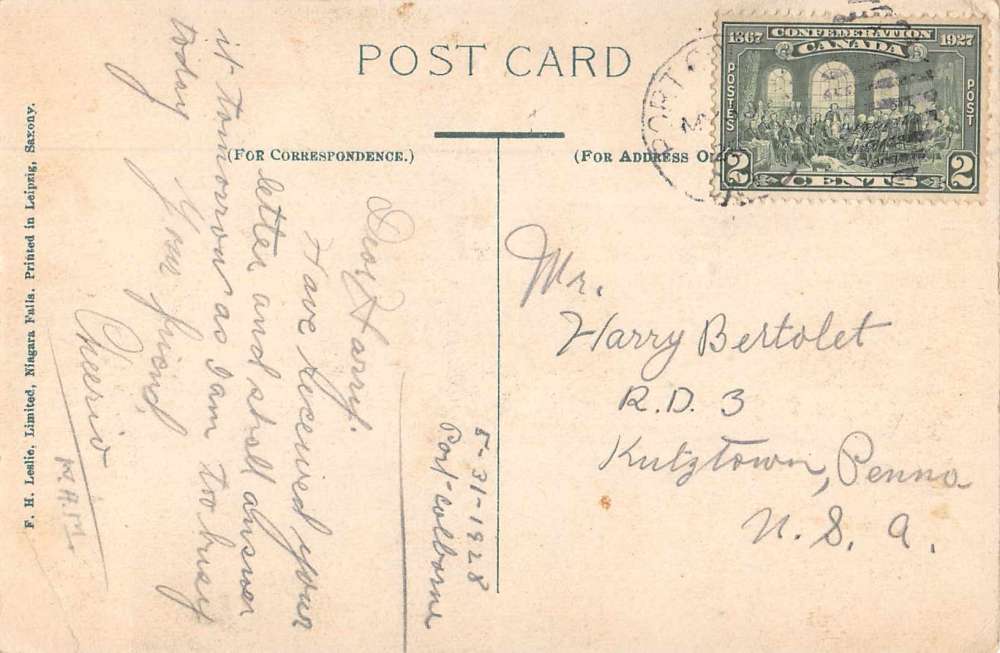 POST CARD
(FOR CORRESPONDENCE.)
(FOR ADDRESS
1867 CONFEDERATION 1927
CANADA
POSTES
POST
2 CENTS 2
PORT
5-31-1928
Port-Colborne
Dear Harry.
Have received your
letter and shall answer
it tomorrow as I am too busy
today
Your friend,
Cheerio
Mr.
Harry Bertolet
R.D. 3
Kutztown, Penna
U.S.A.
F. H. Leslie, Limited, Niagara Falls. Printed in Leipzig, Saxony.